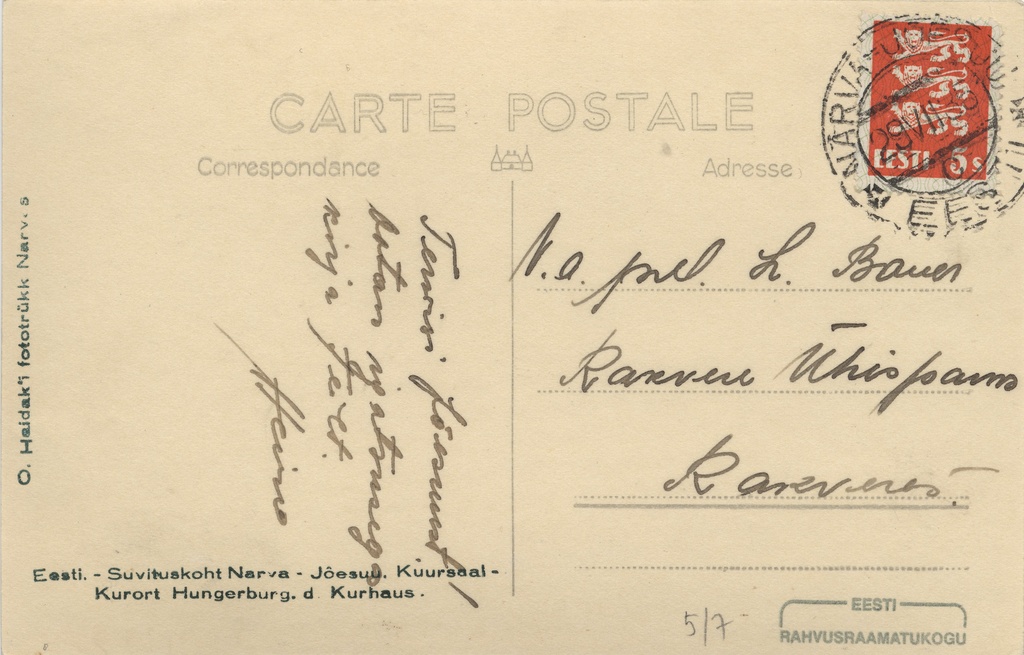 CARTE POSTALE
Correspondance
Adresse
EESTI 5 s
NARVA-
29 VII
EES
O. Heidak'i fototrükk Narvas
Tervisi Jõesuust!
ootan
kirja Teilt.
Heino
V.a. prel. L. Bauer
Rakvere Ühispank
Rakveres.
Eesti. - Suvituskoht Narva - Jõesuu. Kuursaal -
Kurort Hungerburg. d. Kurhaus.
5/7-
EESTI
RAHVUSRAAMATUKOGU